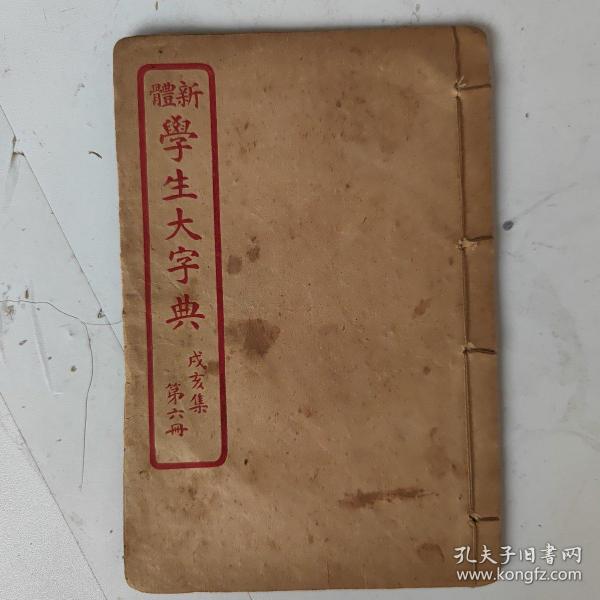 新體
學生大字典
戌亥集
第六冊
孔夫子旧书网
www.kongfz.com